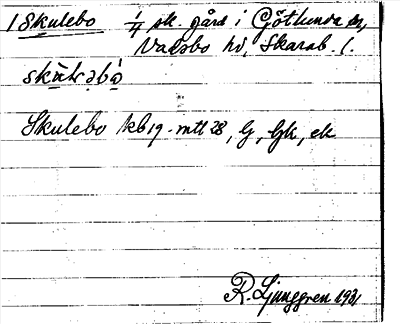 1 Skulebo 1/4 sk. gård i Götlunda sn,
Valsbo hd, Skarab. l.
Skulebo kb 19 - mtl 28, G, Gk, ek
R. Ljunggren 1931